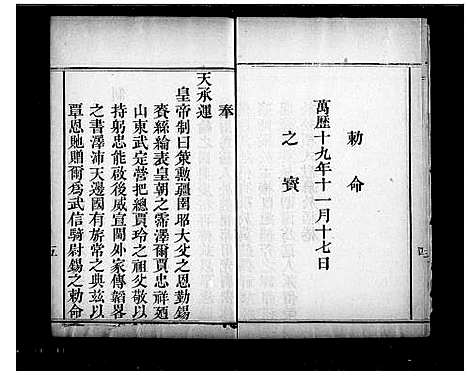 勅命
萬歷十九年十一月十七日
之寶
四
奉
天承運
皇帝制曰策勲疆圉昭大父之恩勤錫
賚絲綸表皇朝之霈澤爾賈忠祥廼
山東武定營把總賈玲之祖父敬以
持躬忠能啟後威宣閫外家傳韜畧
之書澤沛天邊國有旂常之典兹以
覃恩貤贈爾爲武信騎尉錫之勅命
五